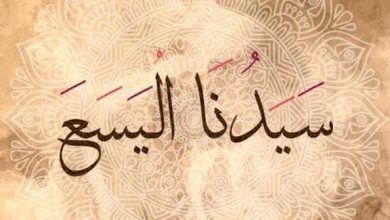 سَيَدُنَا اليَسَعَ